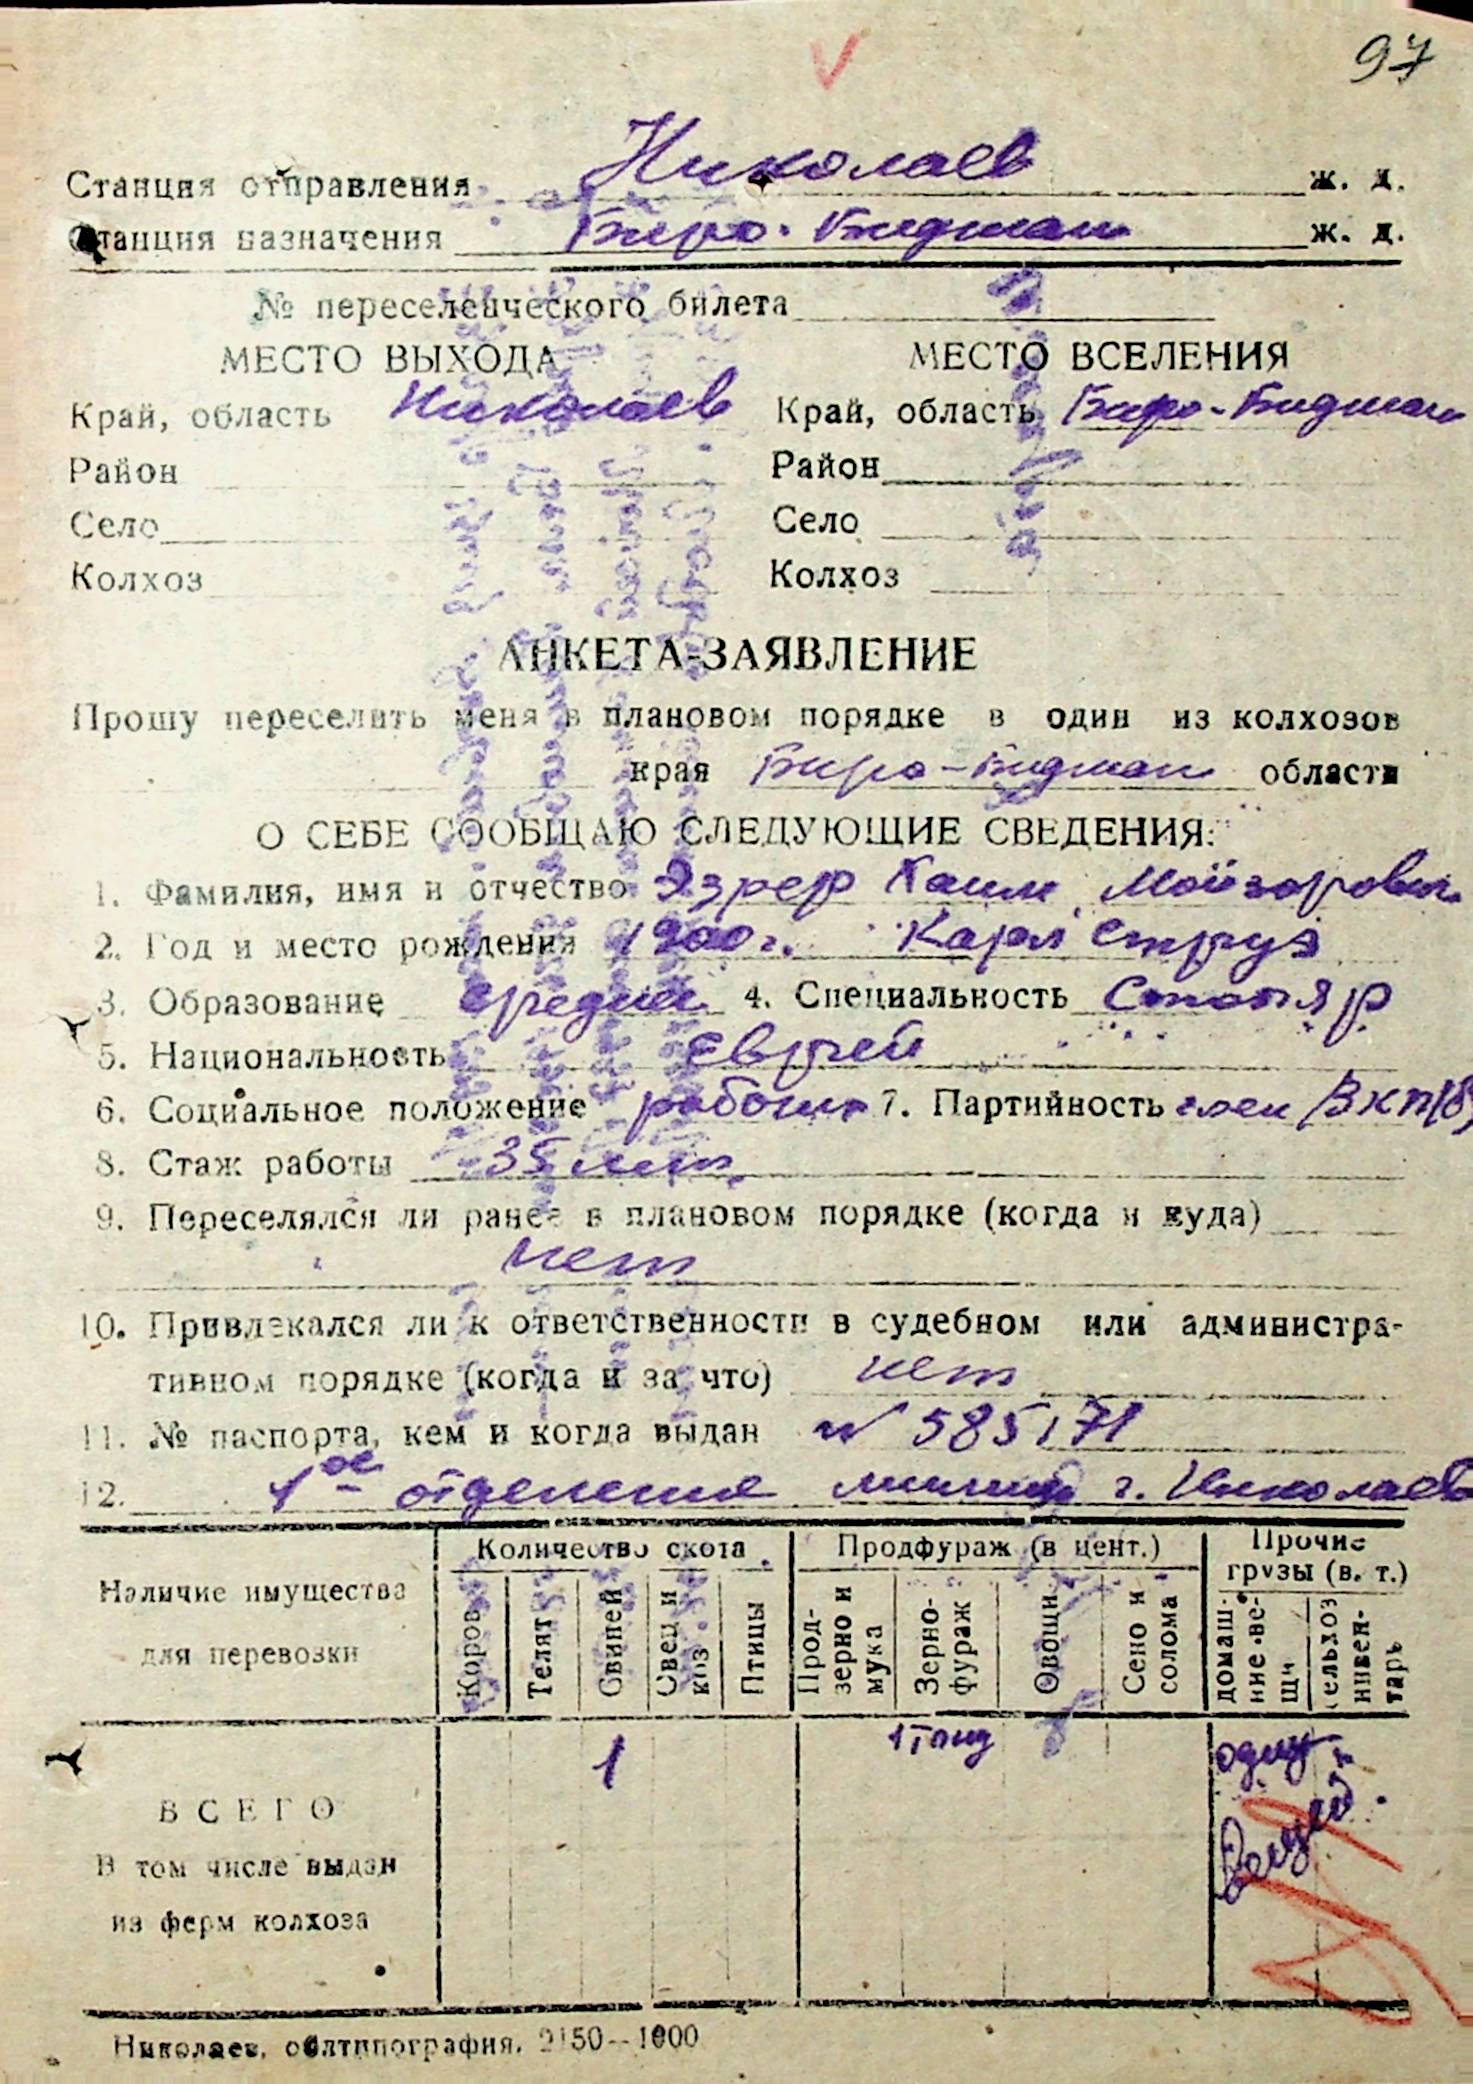 97
Станция отправления Николаев ж. д.
Станция назначения Биро-Биджан ж. д.
№ переселенческого билета
МЕСТО ВЫХОДА МЕСТО ВСЕЛЕНИЯ
Край, область Николаев Край, область Биро-Биджан
Район Район
Село Село
Колхоз Колхоз
АНКЕТА-ЗАЯВЛЕНИЕ
Прошу переселить меня в плановом порядке в один из колхозов
края Биро-Биджан области
О СЕБЕ СООБЩАЮ СЛЕДУЮЩИЕ СВЕДЕНИЯ:
1. Фамилия, имя и отчество Хаим
2. Год и место рождения 1900 г. Карл
3. Образование средние 4. Специальность Столяр
5. Национальность Еврей
6. Социальное положение рабочий 7. Партийность член ВКП(б)
8. Стаж работы 35 лет.
9. Переселялся ли ранее в плановом порядке (когда и куда)
нет
10. Привлекался ли к ответственности в судебном или администра-
тивном порядке (когда и за что) нет
11. № паспорта, кем и когда выдан N 585171
12. 1ое отделение милиции г. Николаев
Количество скота Продфураж (в цент.) Прочие грузы (в. т.)
Наличие имущества для перевозки
Коров Телят Свиней Овец и коз Птицы Прод-зерно и мука Зерно-фураж Овощи Сено и солома домаш-ние ве-щи сельхоз инвен-тарь
ВСЕГО 1 1 тонн одну
В том числе выдан
из ферм колхоза
Николаев, облтипография. 2150—1000